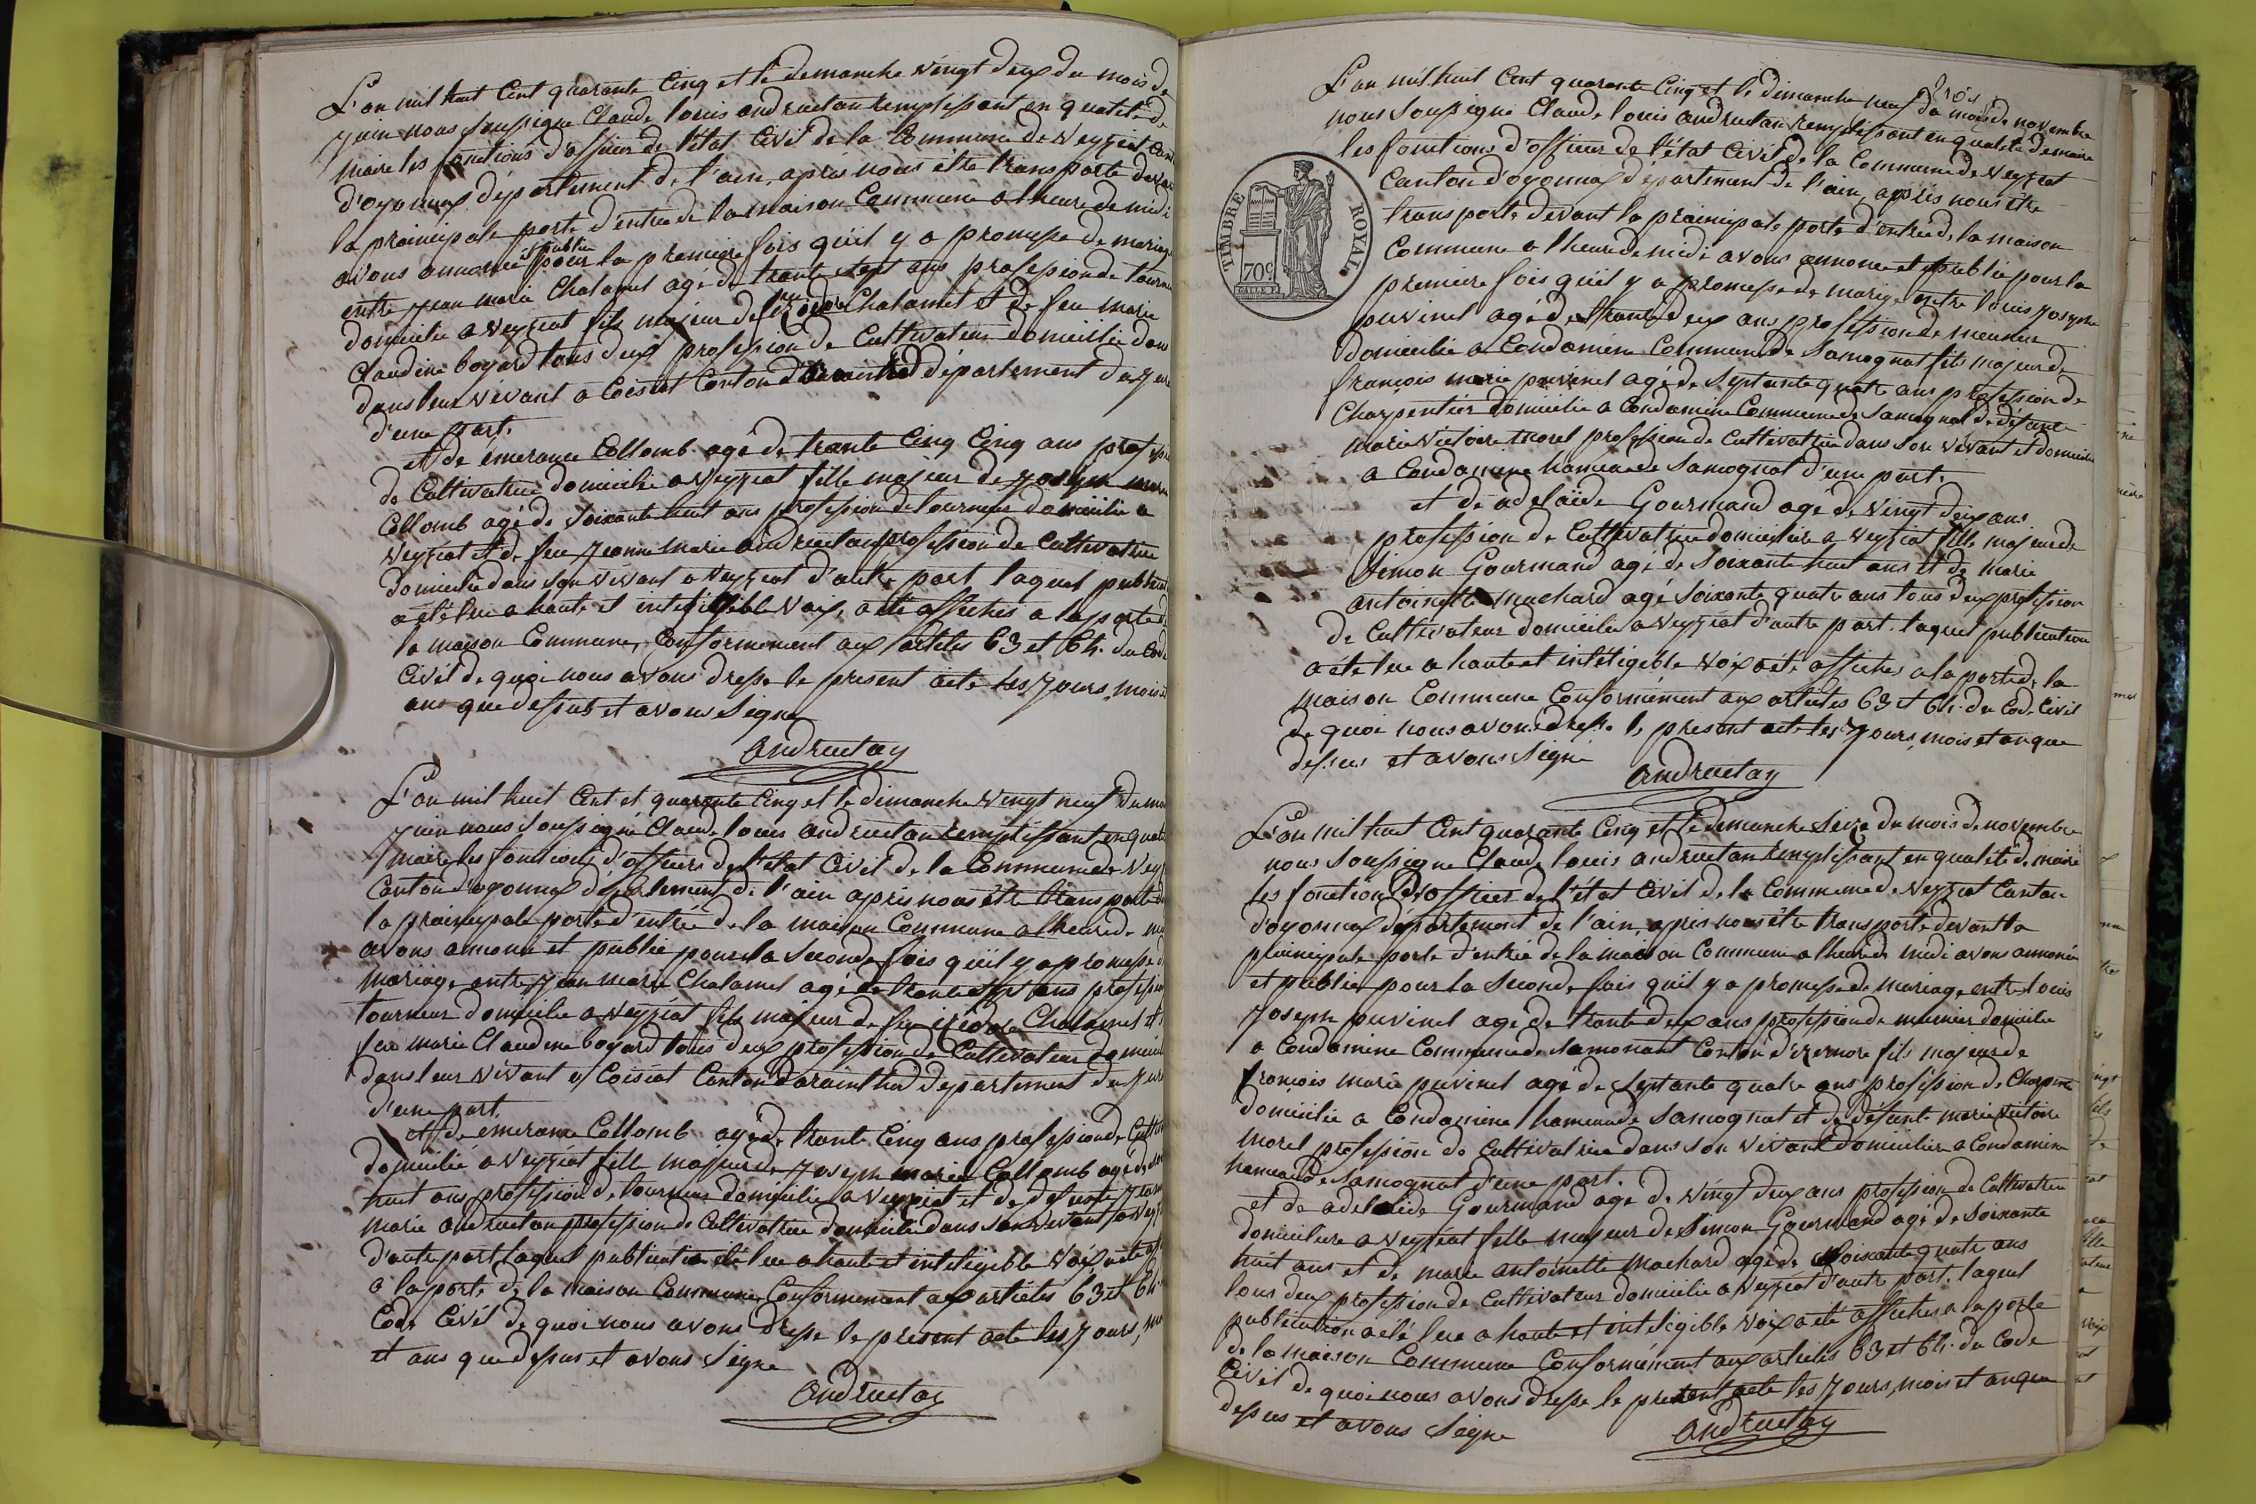 L'an mil huit Cent quarante Cinq et le demanche vingt deux du mois de
juin nous soussigne Claude louis andruetan remplissant en qualité de
maire les fonctions d'officier de l'état Civil de la Commune de Veyziat Can
d'oyonnax département de l'ain, après nous être transporte devan
la prainicipale porte d'entrée de la maison Commune a l'heure de midi
avons annoncé et publie pour la premiere fois qu'il y a promesse de mariage
entre jean marie Chalamel agé de trante sept ans profession de tourneu
domicilie a Veyziat fils majeur de feu Chalamel et de feu marie
Claudine boyard tous deux profession de Cultivateur domicilié dans
dans leur vivant a Coisiat Canton d'arainthod département du jura
d'une part.
et de émerance Collomb agé de trante Cinq Cinq ans profession
de Cultivatrice domicilie a Veyziat fille majeur de joseph marie
Collomb agé de soixante huit ans profession de tourneur domicilie a
Veyziat et de feu jeanne marie andruetan profession de Cultivatrice
domicilie dans son vivant a Veyziat d'autre part laquel publicat
a été lue a haute et inteligible voix, a été affiches a la porte de
la maison Commune, Conformement aux articles 63 et 64. du Code
Civil de quoi nous avons dresse le present acte les jours, mois et
ans que dessus et avons Signe
andruetan
L'an mil huit Cent et quarante Cinq et le dimanche vingt neuf du mois
juin nous soussigné Claude louis andruetan remplissant en qualit
maire les fonctions d'officiers de l'état Civil de la Commune de Vey
Canton d'oyonnax département de l'ain apris nous être transporte de
la prainicipale porte d'entrée de la maison Commune a l'heure de mi
avons annonce et publie pour la seconde fois qu'il y a promesse d
mariage entre jean marie Chalamel agé de trante sept ans profession
tourneur domicilie a Veyziat fils majeur de feu Chalamel et
feu marie Claudine boyard tous deux profession de Cultivateur domicili
dans leur vivant a Coisiat Canton d'arainthod département du jura
d'une part.
et de émerance Collomb agé de trante Cinq ans profession de Cultiv
domicilié a Veyziat fille majeur de joseph marie Collomb agé de soi
huit ans profession de tourneur domicilie a Veyziat et de defunte jeann
marie andruetan profession de Cultivatrice domicilie dans son vivant a Vey
d'autre part laquel publication été lue a haute et inteligible voix a été af
a la porte de la maison Commune Conformement aux articles 63 et 64
Code Civil de quoi nous avons dresse le présent acte les jours, mo
et ans que dessus et avons Signe
andruetan
TIMBRE ROYAL
70c
L'an mil huit Cent quarante Cinq et le dimanche neuf du mois de novembre
nous soussigne Claude louis andruetan remplissant en qualité de maire
les fonctions d'officier de l'état Civil de la Commune de Veyziat
Canton d'oyonnax département de l'ain, après nous être
transporte devant la prainicipale porte d'entrée de la maison
Commune a l'heure de midi avons annonce et publie pour la
premiere fois qu'il y a promesse de mariage entre louis joseph
puvinel agé de trante deux ans profession de meunier
domicilie a Condamine Commune de Samognat fils majeur de
françois marie puvinel agé de septante quatre ans profession de
Charpentier domicilie a Condamine Commune de Samognat de défunte
marie victoire morel profession de Cultivatrice dans son vivant et domicilie
a Condamine hameau de Samognat d'une part.
et de adelaïde Gourmand agé de vingt deux ans
profession de Cultivatrice domicilière a Veyziat fille majeur de
Simon Gourmand agé de soixante huit ans et de marie
antoinette machard agé soixante quatre ans tous deux profession
de Cultivateur domicilie a Veyziat d'autre part. laquel publication
a été lue a haute et inteligible voix a été affiches a la porte de la
maison Commune Conformément aux articles 63 et 64. du Code Civil
de quoi nous avons dresse le present acte les jours, mois et an que
dessus et avons Signe
andruetan
L'an mil huit Cent quarante Cinq et le demanche seize du mois de novembre
nous soussigne Claude louis andruetan remplissant en qualité de maire
les fonctions d'officier de l'état Civil de la Commune de Veyziat Canton
d'oyonnax département de l'ain, apris nous être transporte devant la
prainicipale porte d'entrée de la maison Commune a l'heure de midi avons annoncé
et publie pour la Seconde fois qu'il y a promesse de mariage entre louis
joseph puvinel agé de trante deux ans profession de meunier domicilie
a Condamine Commune de Samonant Canton d'izernore fils majeur de
françois marie puvinel agé de septante quatre ans profession de Charpent
domicilie a Condamine hameau de Samognat et de défunte marie victoire
morel profession de Cultivatrice dans son vivant domicilier a Condamine
hameau de Samognat d'une part.
et de adelaide Gourmand age de vingt deux ans profession de Cultivatrice
domicilière a Veyziat fille majeur de Simon Gourmand agé de soixante
huit ans et de marie antoinette machard age de soixante quatre ans
tous deux profession de Cultivateur domicilie a Veyziat d'autre part. laquel
publication a été lue a haute et inteligible voix a été affiches a la porte
de la maison Commune Conformément aux articles 63 et 64. du Code
Civil de quoi nous avons dresse le present acte les jours, mois et an que
dessus et avons Signe
andruetan